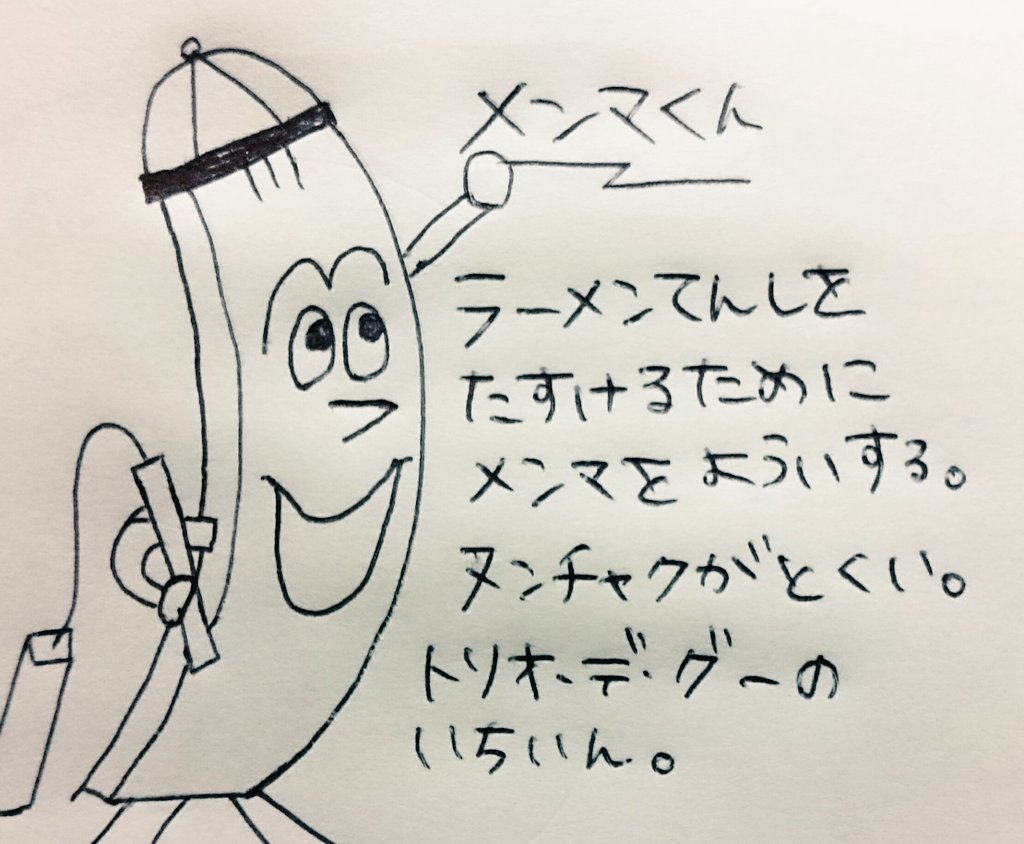 メンマくん
ラーメンてんしを
たすけるために
メンマをよういする。
ヌンチャクがとくい。
トリオ・デ・グーの
いちいん。